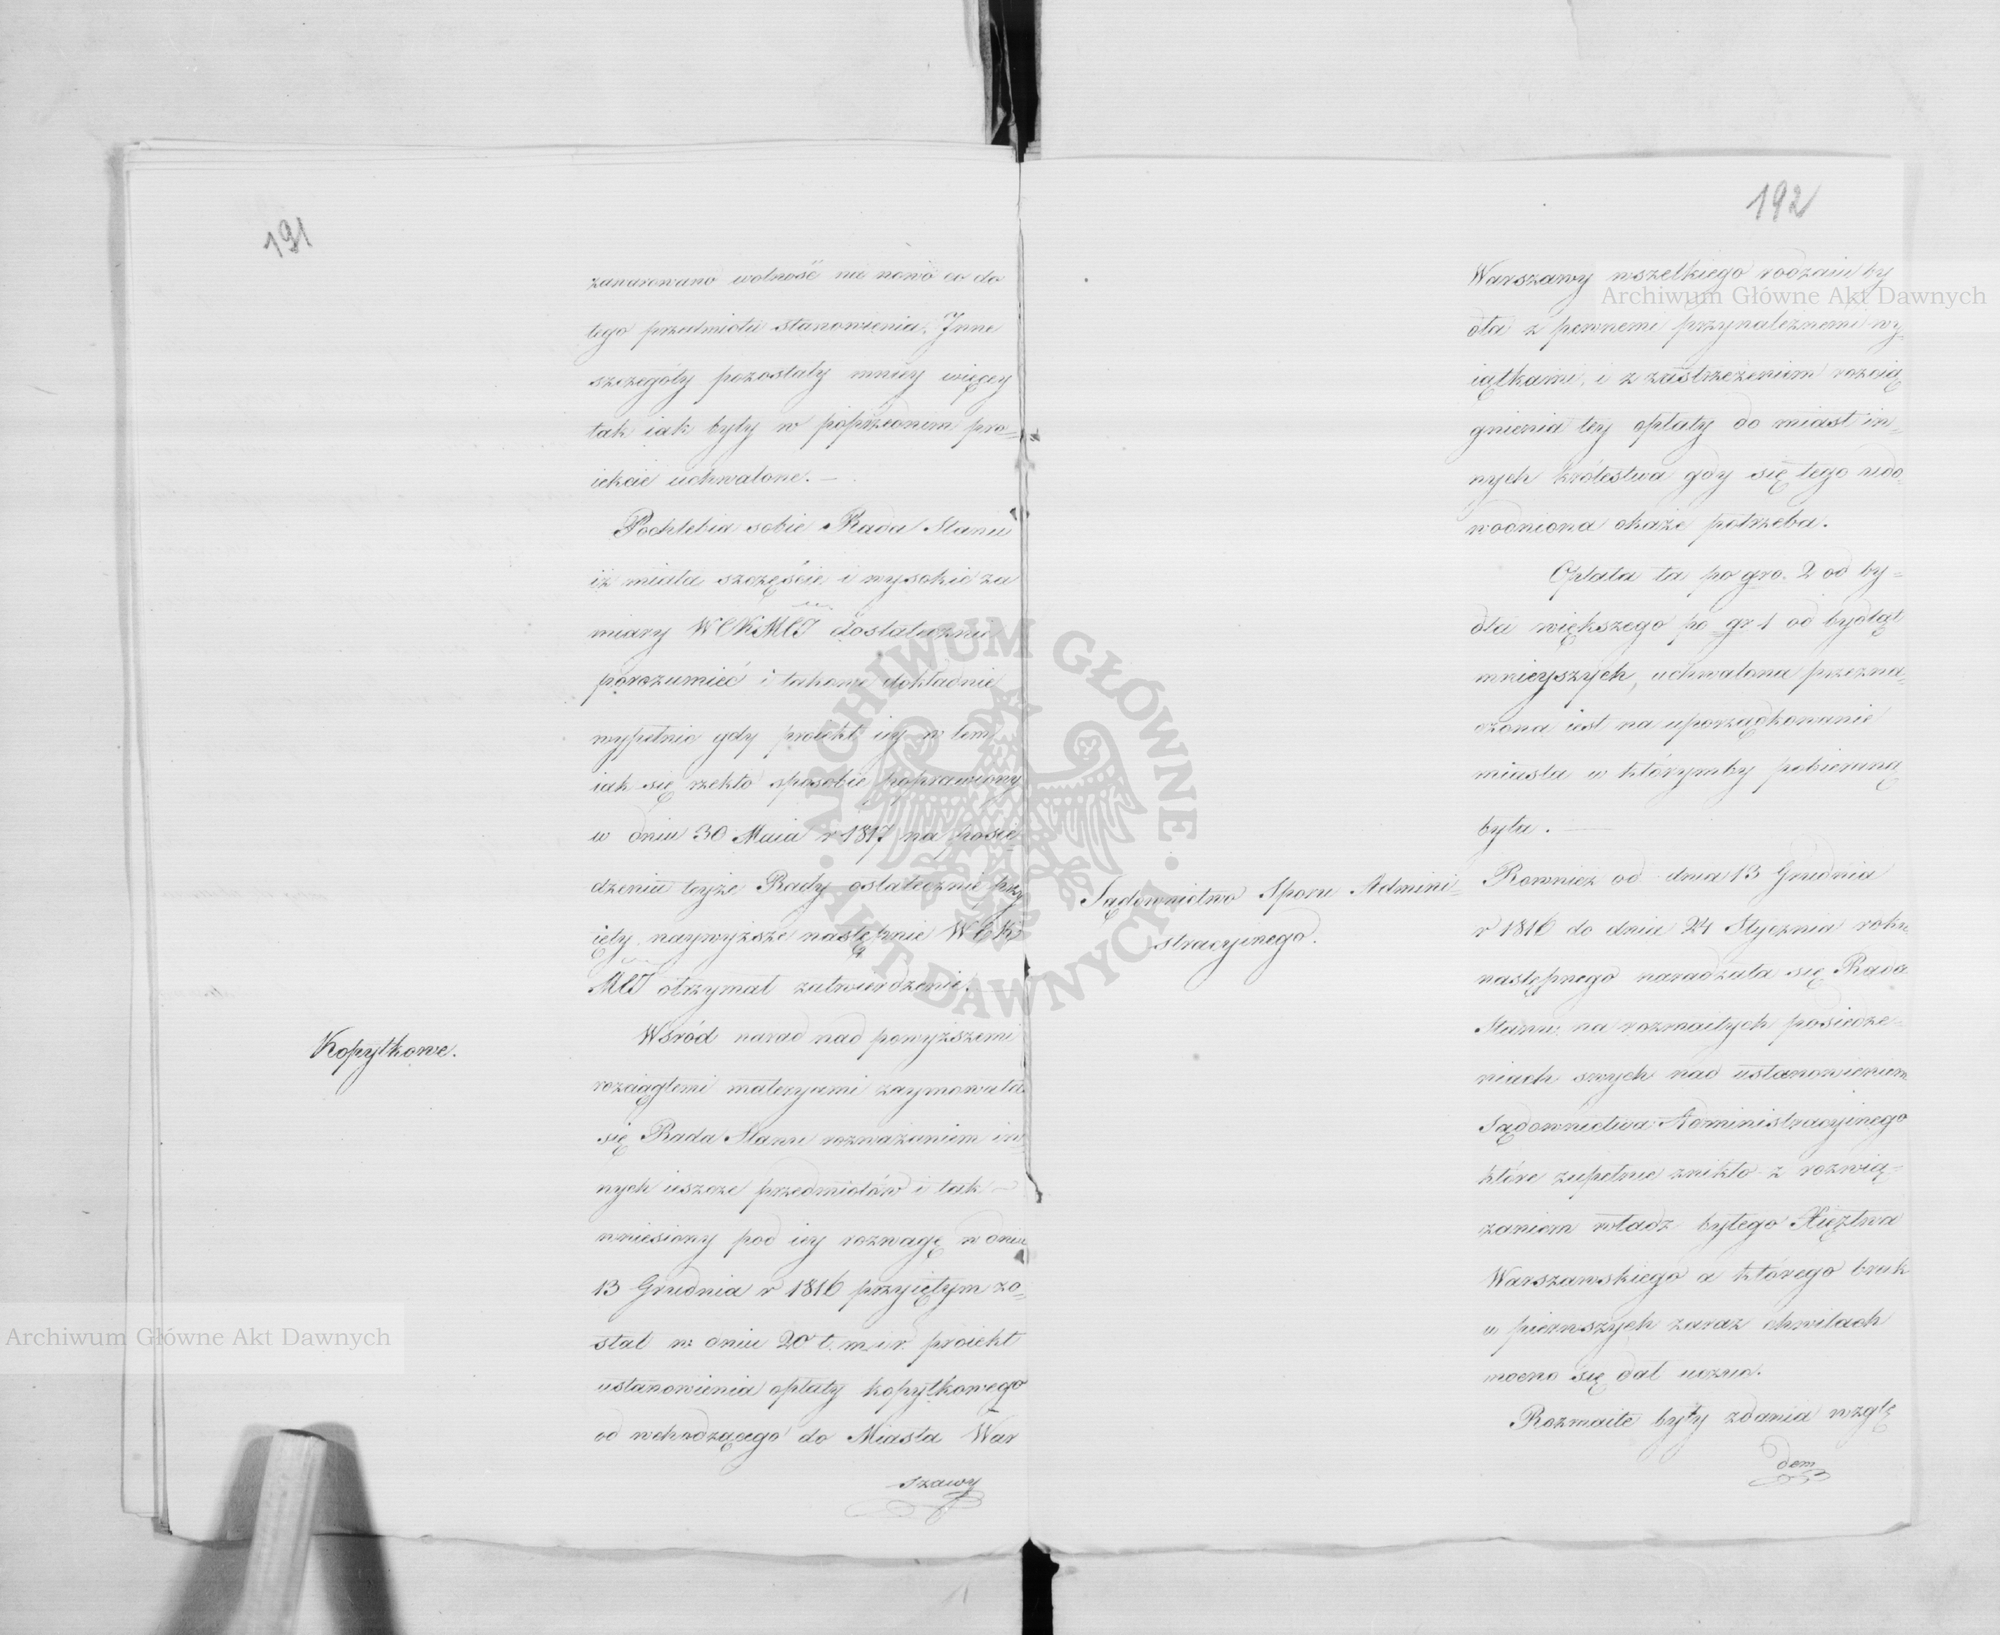 191
zawarowano wolność nic nowo co do
tego przedmiotu stanowienia. Inne
szczegóły pozostały mniey więcey
tak iak były w poprzednim pro=
iekcie uchwalone. —
Pochlebia sobie Rada Stanu
iż miała szczęście i wysokie za
miary WCKMCI dostatecznie
porozumieć i takowe dokładnie
wypełnić gdy proiekt iey w tem
iak się rzekło sposobie poprawiony
w dniu 30 Maia r 1817 na posie=
dzeniu teyże Rady ostatecznie przy
ięty, naywyższe następnie WCK
MCI otrzymał zatwierdzenie.
Kopytkowe.
Wśród narad nad powyższemi
rozciągłemi materyami zaymowała
się Rada Stanu rozważaniem in=
nych ieszcze przedmiotów i tak —
wniesiony pod iey rozwagę w dniu
13 Grudnia r 1816 przyiętym zo=
stał w dniu 20 t. m. i r. proiekt
ustanowienia opłaty kopytkowego
od wchodzącego do Miasta War
szawy
192
Warszawy wszelkiego rodzaiu by
dła z pewnemi przynależnemi wy=
iątkami, i z zastrzeżeniem rozcią
gnienia tey opłaty do miast in=
nych królestwa gdy się tego udo=
wodniona okaże potrzeba.
Opłata ta po gro. 2 od by=
dła większego po gr 1 od bydląt
mnieyszych, uchwalona przezna=
czona iest na uporządkowanie
miasta w którymby pobieraną
była.
Sądownictwo Sporu Admini=
stracyinego.
Rownież od dnia 13 Grudnia
r 1816 do dnia 24 Stycznia roku
następnego naradzała się Rada
Stanu na rozmaitych posiedze=
niach swych nad ustanowieniem
Sądownictwa Administracyinego
które zupełnie znikło z rozwią=
zaniem władz byłego Xięztwa
Warszawskiego a którego brak
w pierwszych zaraz chwilach
mocno się dał uczuć.
Rozmaite były zdania wzglę
dem
Archiwum Główne Akt Dawnych
Archiwum Główne Akt Dawnych
ARCHIWUM GŁÓWNE · AKT DAWNYCH ·